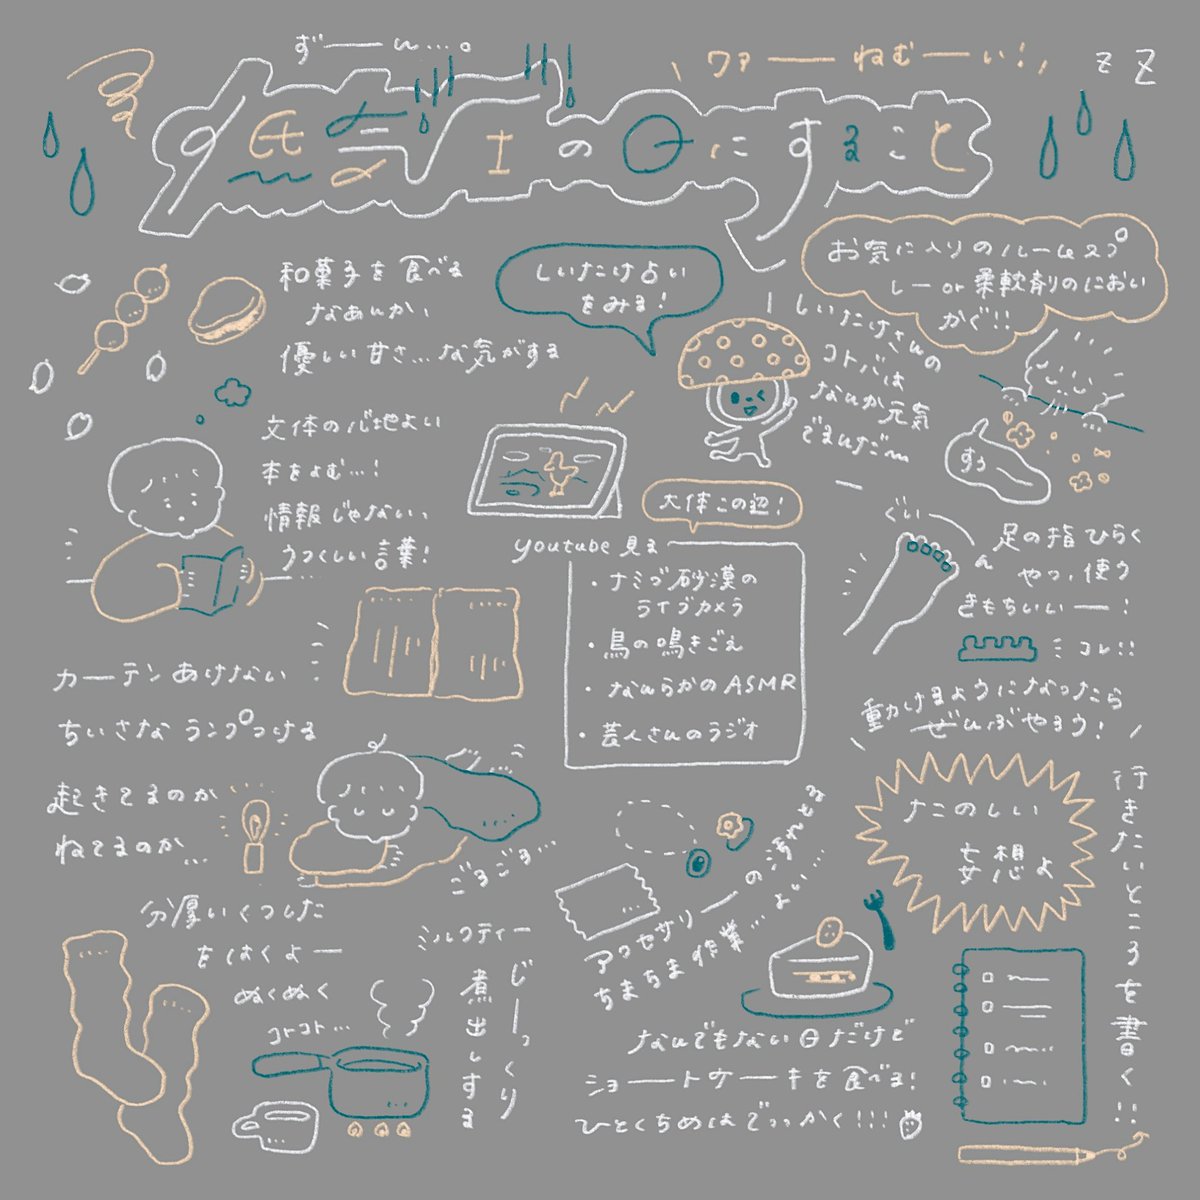 ずーん…。
ワァーーねむーーい！
z Z
低気圧の日にすること
和菓子を食べる
なあんか、
優しい甘さ…な気がする
しいたけ占い
をみる！
しいたけさんの
コトバは
なんか元気
でまんだ〜
お気に入りのルームスプ
レーor柔軟剤のにおい
かぐ!!
すぅ
文体の心地よい
本をよむ…！
情報じゃない、
うつくしい言葉！
大体この辺！
youtube見る
・ナミブ砂漠の
ライブカメラ
・鳥の鳴きごえ
・なんらかのASMR
・芸人さんのラジオ
ぐいーん
足の指ひらく
やつ、使う
きもちいいー！
コレ!!
動けるようになったら
ぜんぶやろう！
カーテンあけない
ちいさなランプつける
起きてるのか
ねてるのか…
ごろごろ…
たのしい
妄想よ
行きたいところを書く!!
アクセサリーの
ちまちま作業…よい…
分厚いくつした
をはくよー
ぬくぬく
コトコト…
ミルクティー
じーっくり
煮出しする
なんでもない日だけど
ショートケーキを食べる！
ひとくちめはでっかく!!!